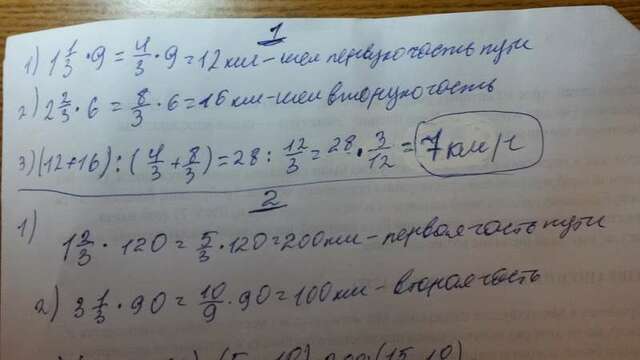 1
1) 1 1/3 · 9 = 4/3 · 9 = 12 км – шел первую часть пути
2) 2 2/3 · 6 = 8/3 · 6 = 16 км – шел вторую часть
3) (12+16) : (4/3 + 8/3) = 28 : 12/3 = 28 · 3/12 = 7 км/ч
2
1) 1 2/3 · 120 = 5/3 · 120 = 200 км – первая часть пути
2) 3 1/3 · 90 = 10/9 · 90 = 100 км – вторая часть